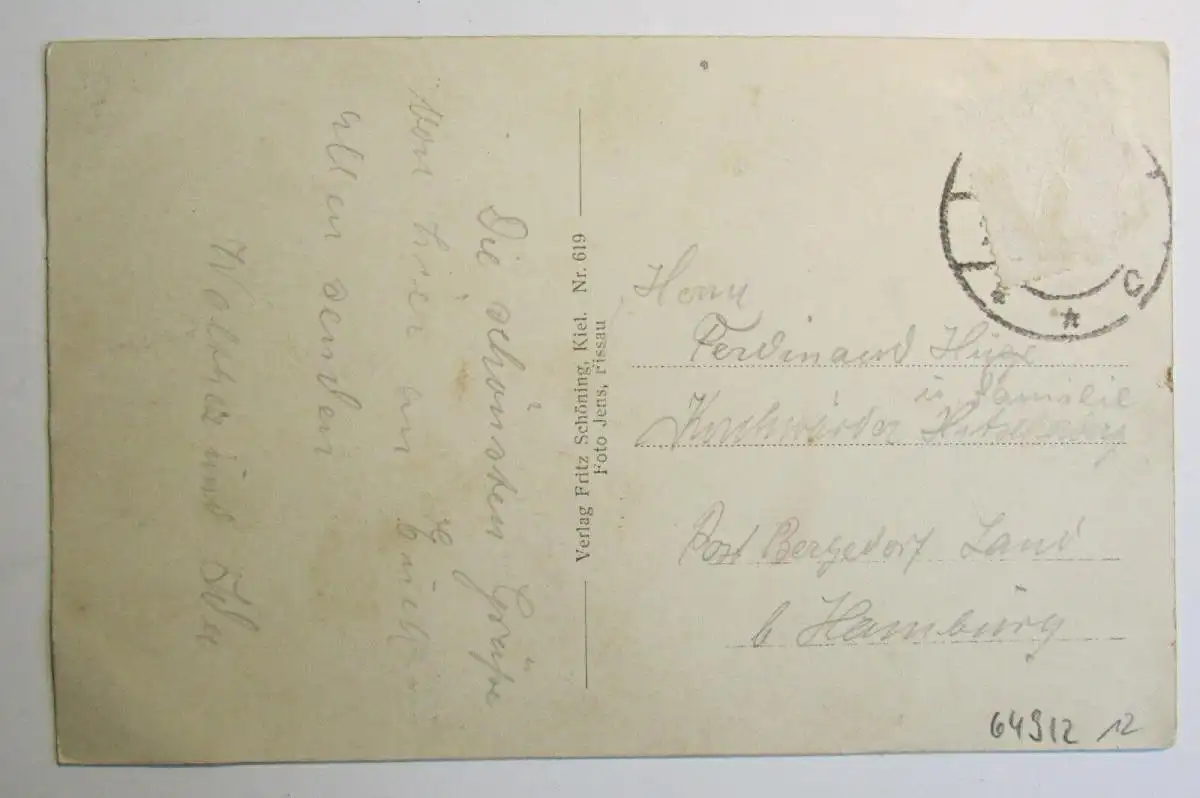 Die schönsten Grüße
von hier an Euch
allen senden
und Ida
Verlag Fritz Schöning, Kiel. Nr. 619
Foto Jens, Pissau
Herrn
Ferdinand
u Familie
Kirchwärder
Post Bergedorf Land
b Hamburg
C
64912 12